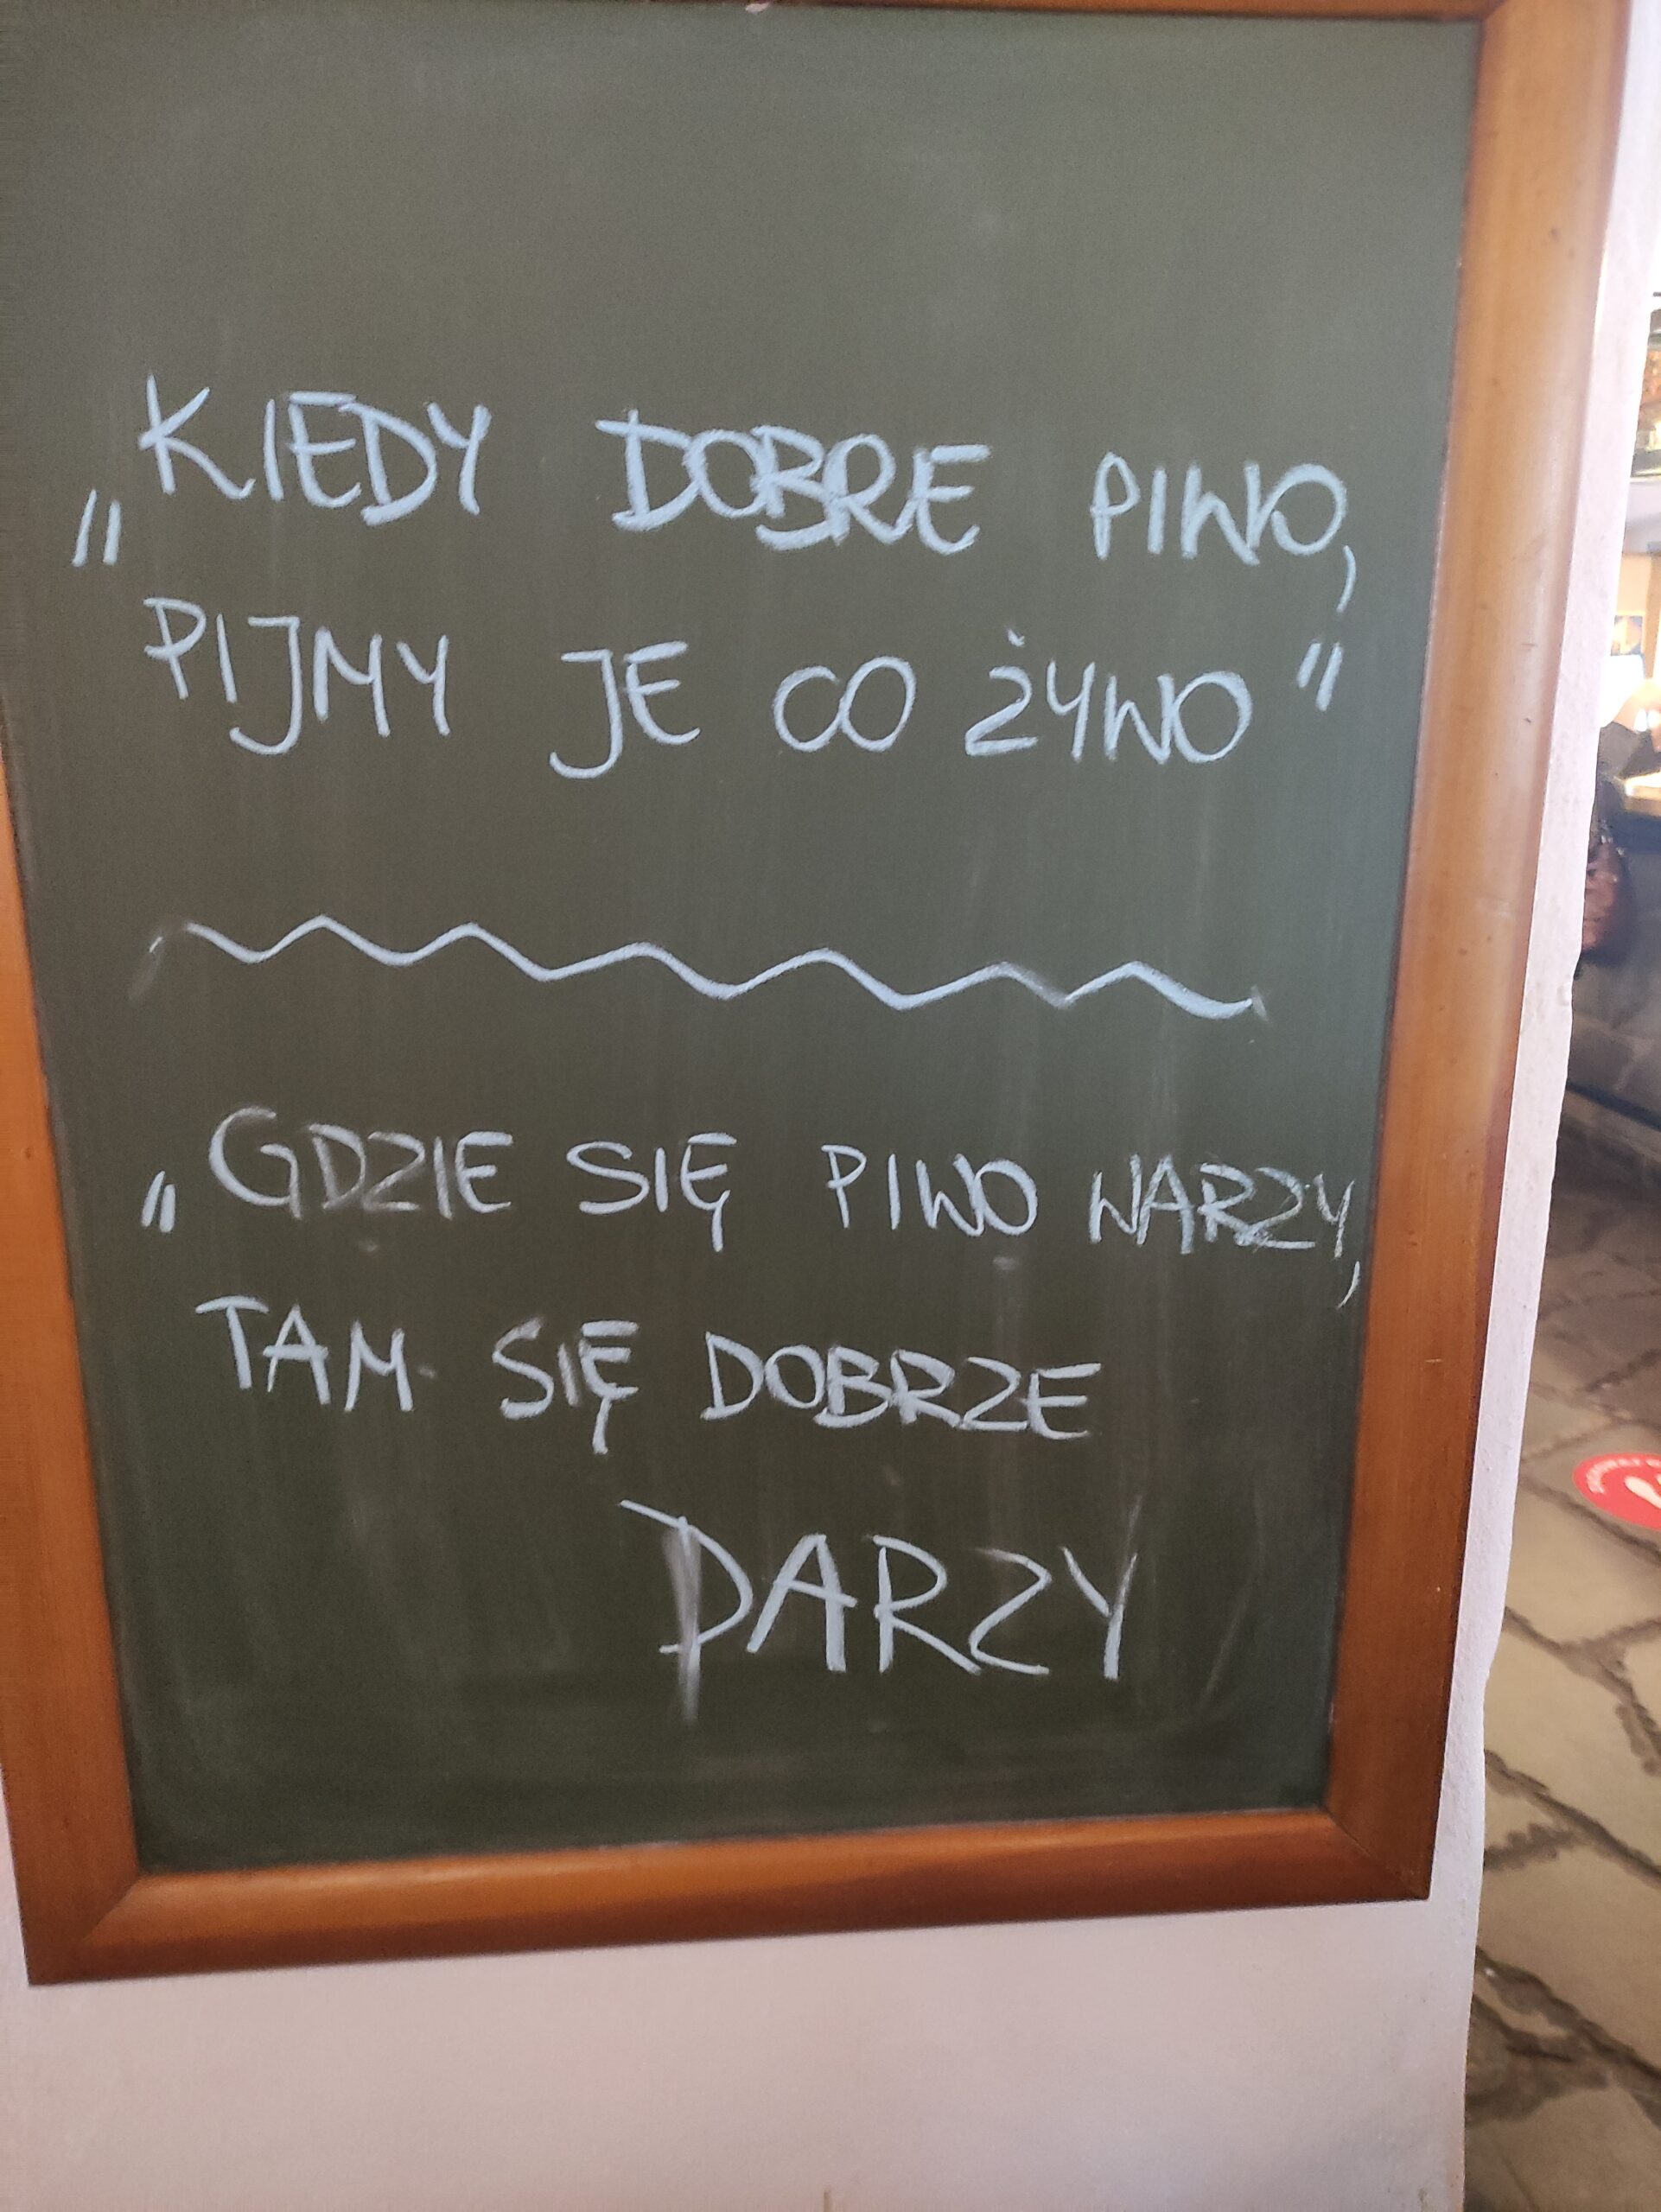 „KIEDY DOBRE PIWO,
PIJMY JE CO ŻYWO"
„GDZIE SIĘ PIWO WARZY,
TAM SIĘ DOBRZE
DARZY